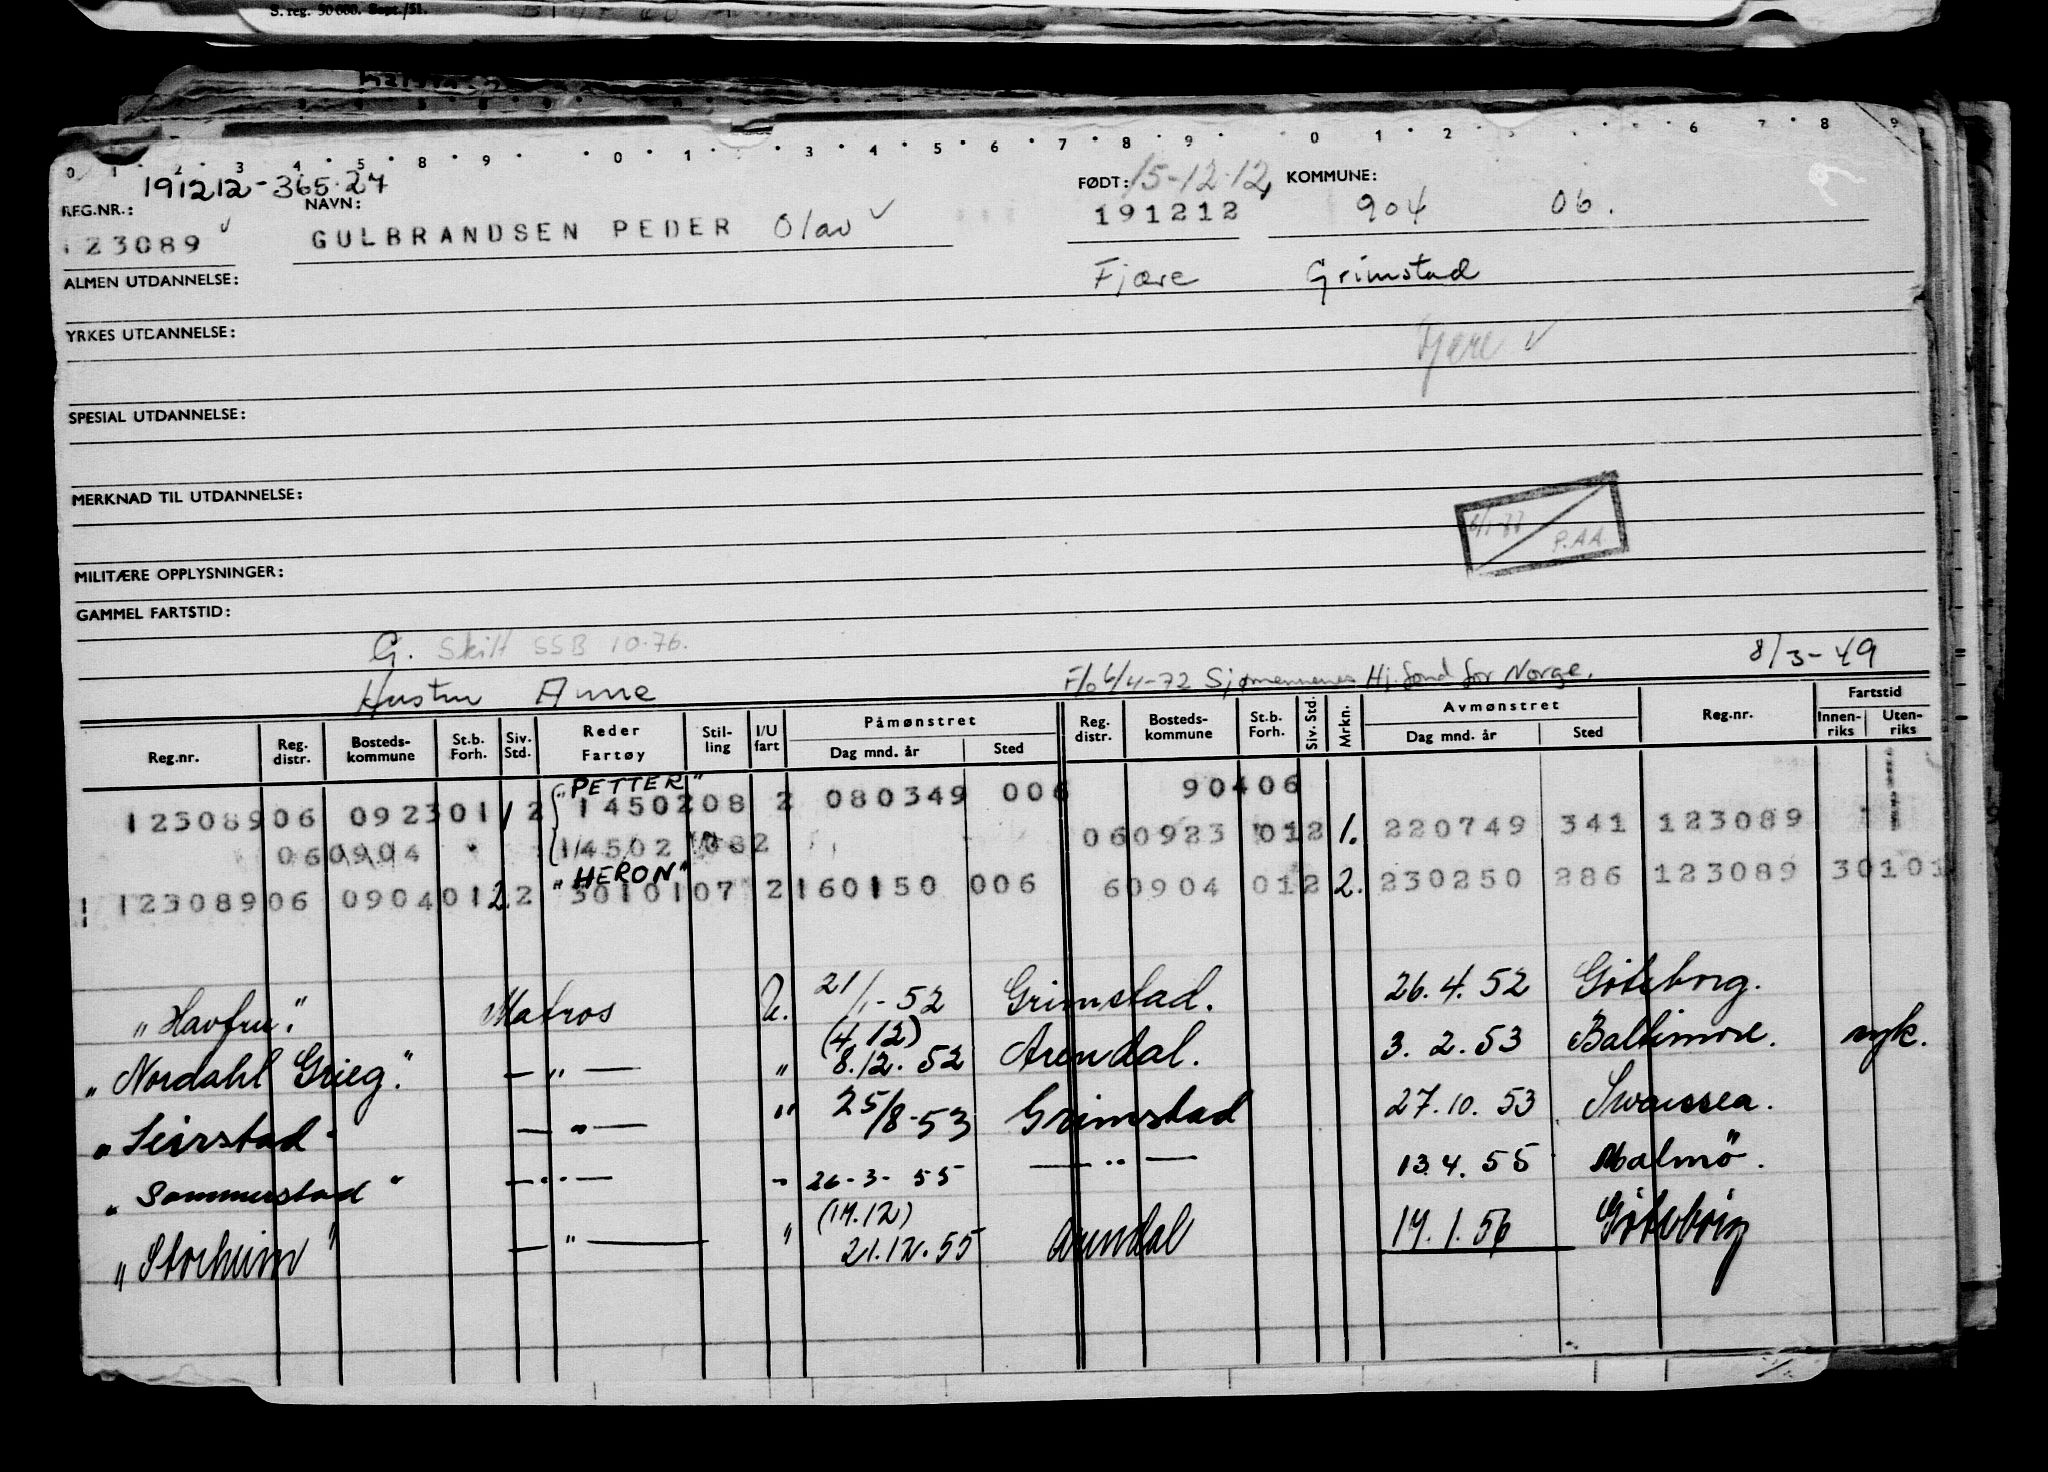 S. reg. 50 000. Sept./51.
0 1 2 3 4 5 8 9 0 1 3 4 5 6 7 8 9 0 1 2 6 7 8 9
191212-365.27
REG.NR.: NAVN: FØDT: 15-12-12, KOMMUNE:
123089 GULBRANDSEN PEDER Olav 191212 904 06.
ALMEN UTDANNELSE: Fjære Grimstad
YRKES UTDANNELSE: Fjære
SPESIAL UTDANNELSE:
MERKNAD TIL UTDANNELSE:
P.AA
MILITÆRE OPPLYSNINGER:
GAMMEL FARTSTID:
G. Skilt SSB 10.76.
Hustru Anne F/o 6/4-72 Sjømennenes Hj.fond for Norge. 8/3-49
Reg.nr. Reg. distr. Bosteds-kommune St.b. Forh. Siv. Std. Reder Fartøy Stil-ling I/U fart Påmønstret Dag mnd. år Sted Reg. distr. Bosteds-kommune St.b. Forh. Siv. Std. Mrkn. Avmønstret Dag mnd. år Sted Reg.nr. Fartstid Innen-riks Uten-riks
"PETTER"
12308906 0923011 2 1450208 2 080349 006 90406
060904 14502 082 060923 012 1. 220749 341 123089
"HERON"
12308906 0904012 2 3010107 2 160150 006 60904 012 2. 230250 286 123089 30101
"Havfru." Matros U. 21/1-52 Grimstad. 26.4.52 Göteborg.
(4.12)
"Nordahl Grieg." —"— " 8.12.52 Arendal. 3.2.53 Baltimore. syk.
"Seirstad" —"— " 25/8-53 Grimstad 27.10.53 Swansea.
"Sommerstad" —"— " 26-3-55 —"— 13.4.55 Malmö.
(17.12)
"Storheim" —"— " 21.12.55 Arendal 17.1.56 Göteborg